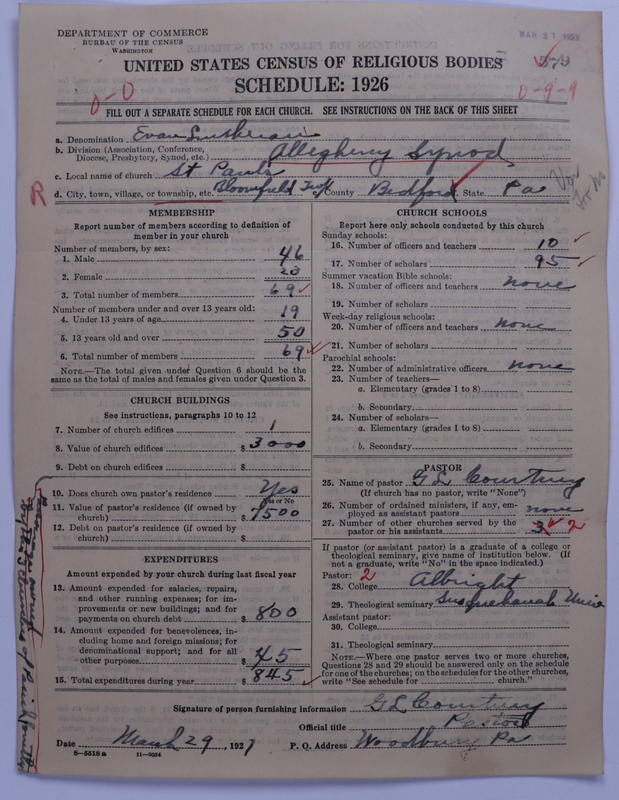 DEPARTMENT OF COMMERCE
BUREAU OF THE CENSUS
WASHINGTON
UNITED STATES CENSUS OF RELIGIOUS BODIES
SCHEDULE: 1926
5-79
0-0
0-9-9
FILL OUT A SEPARATE SCHEDULE FOR EACH CHURCH. SEE INSTRUCTIONS ON THE BACK OF THIS SHEET
a. Denomination Evan Lutheran
b. Division (Association, Conference,
Diocese, Presbytery, Synod, etc.) Allegheny Synod
c. Local name of church St Pauls
d. City, town, village, or township, etc. Bloomfield Twp County Bedford State Pa
R
MEMBERSHIP
Report number of members according to definition of
member in your church
Number of members, by sex:
1. Male 46
2. Female 23
3. Total number of members 69
Number of members under and over 13 years old:
4. Under 13 years of age 19
5. 13 years old and over 50
6. Total number of members 69
NOTE.—The total given under Question 6 should be
same as the total of males and females given under Question 3.
CHURCH BUILDINGS
See instructions, paragraphs 10 to 12
7. Number of church edifices 1
8. Value of church edifices $ 3000
9. Debt on church edifices $
10. Does church own pastor's residence Yes
Yes or No
11. Value of pastor's residence (if owned by
church) $ 7500
12. Debt on pastor's residence (if owned by
church) $
EXPENDITURES
Amount expended by your church during last fiscal year
13. Amount expended for salaries, repairs,
and other running expenses; for im-
provements or new buildings; and for
payments on church debt $ 800
14. Amount expended for benevolences, in-
cluding home and foreign missions; for
denominational support; and for all
other purposes $ 45
15. Total expenditures during year $ 845
CHURCH SCHOOLS
Report here only schools conducted by this church
Sunday schools:
16. Number of officers and teachers 10
17. Number of scholars 95
Summer vacation Bible schools:
18. Number of officers and teachers none
19. Number of scholars
Week-day religious schools:
20. Number of officers and teachers none
21. Number of scholars
Parochial schools:
22. Number of administrative officers none
23. Number of teachers—
a. Elementary (grades 1 to 8)
b. Secondary
24. Number of scholars—
a. Elementary (grades 1 to 8)
b. Secondary
PASTOR
25. Name of pastor G L Courtney
(If church has no pastor, write "None")
26. Number of ordained ministers, if any, em-
ployed as assistant pastors none
27. Number of other churches served by the
pastor or his assistants 3 2
If pastor (or assistant pastor) is a graduate of a college or
theological seminary, give name of institution below. (If
not a graduate, write "No" in the space indicated.)
Pastor: 2
28. College Albright
29. Theological seminary Susquehannah Univ
Assistant pastor:
30. College
31. Theological seminary
NOTE.—Where one pastor serves two or more churches,
Questions 28 and 29 should be answered only on the schedule
for one of the churches; on the schedules for the other churches,
write "See schedule for church."
Signature of person furnishing information G L Courtney
Official title Pastor
Date March 29, 1927 P. O. Address Woodbury Pa
8—5518 a 11—9034